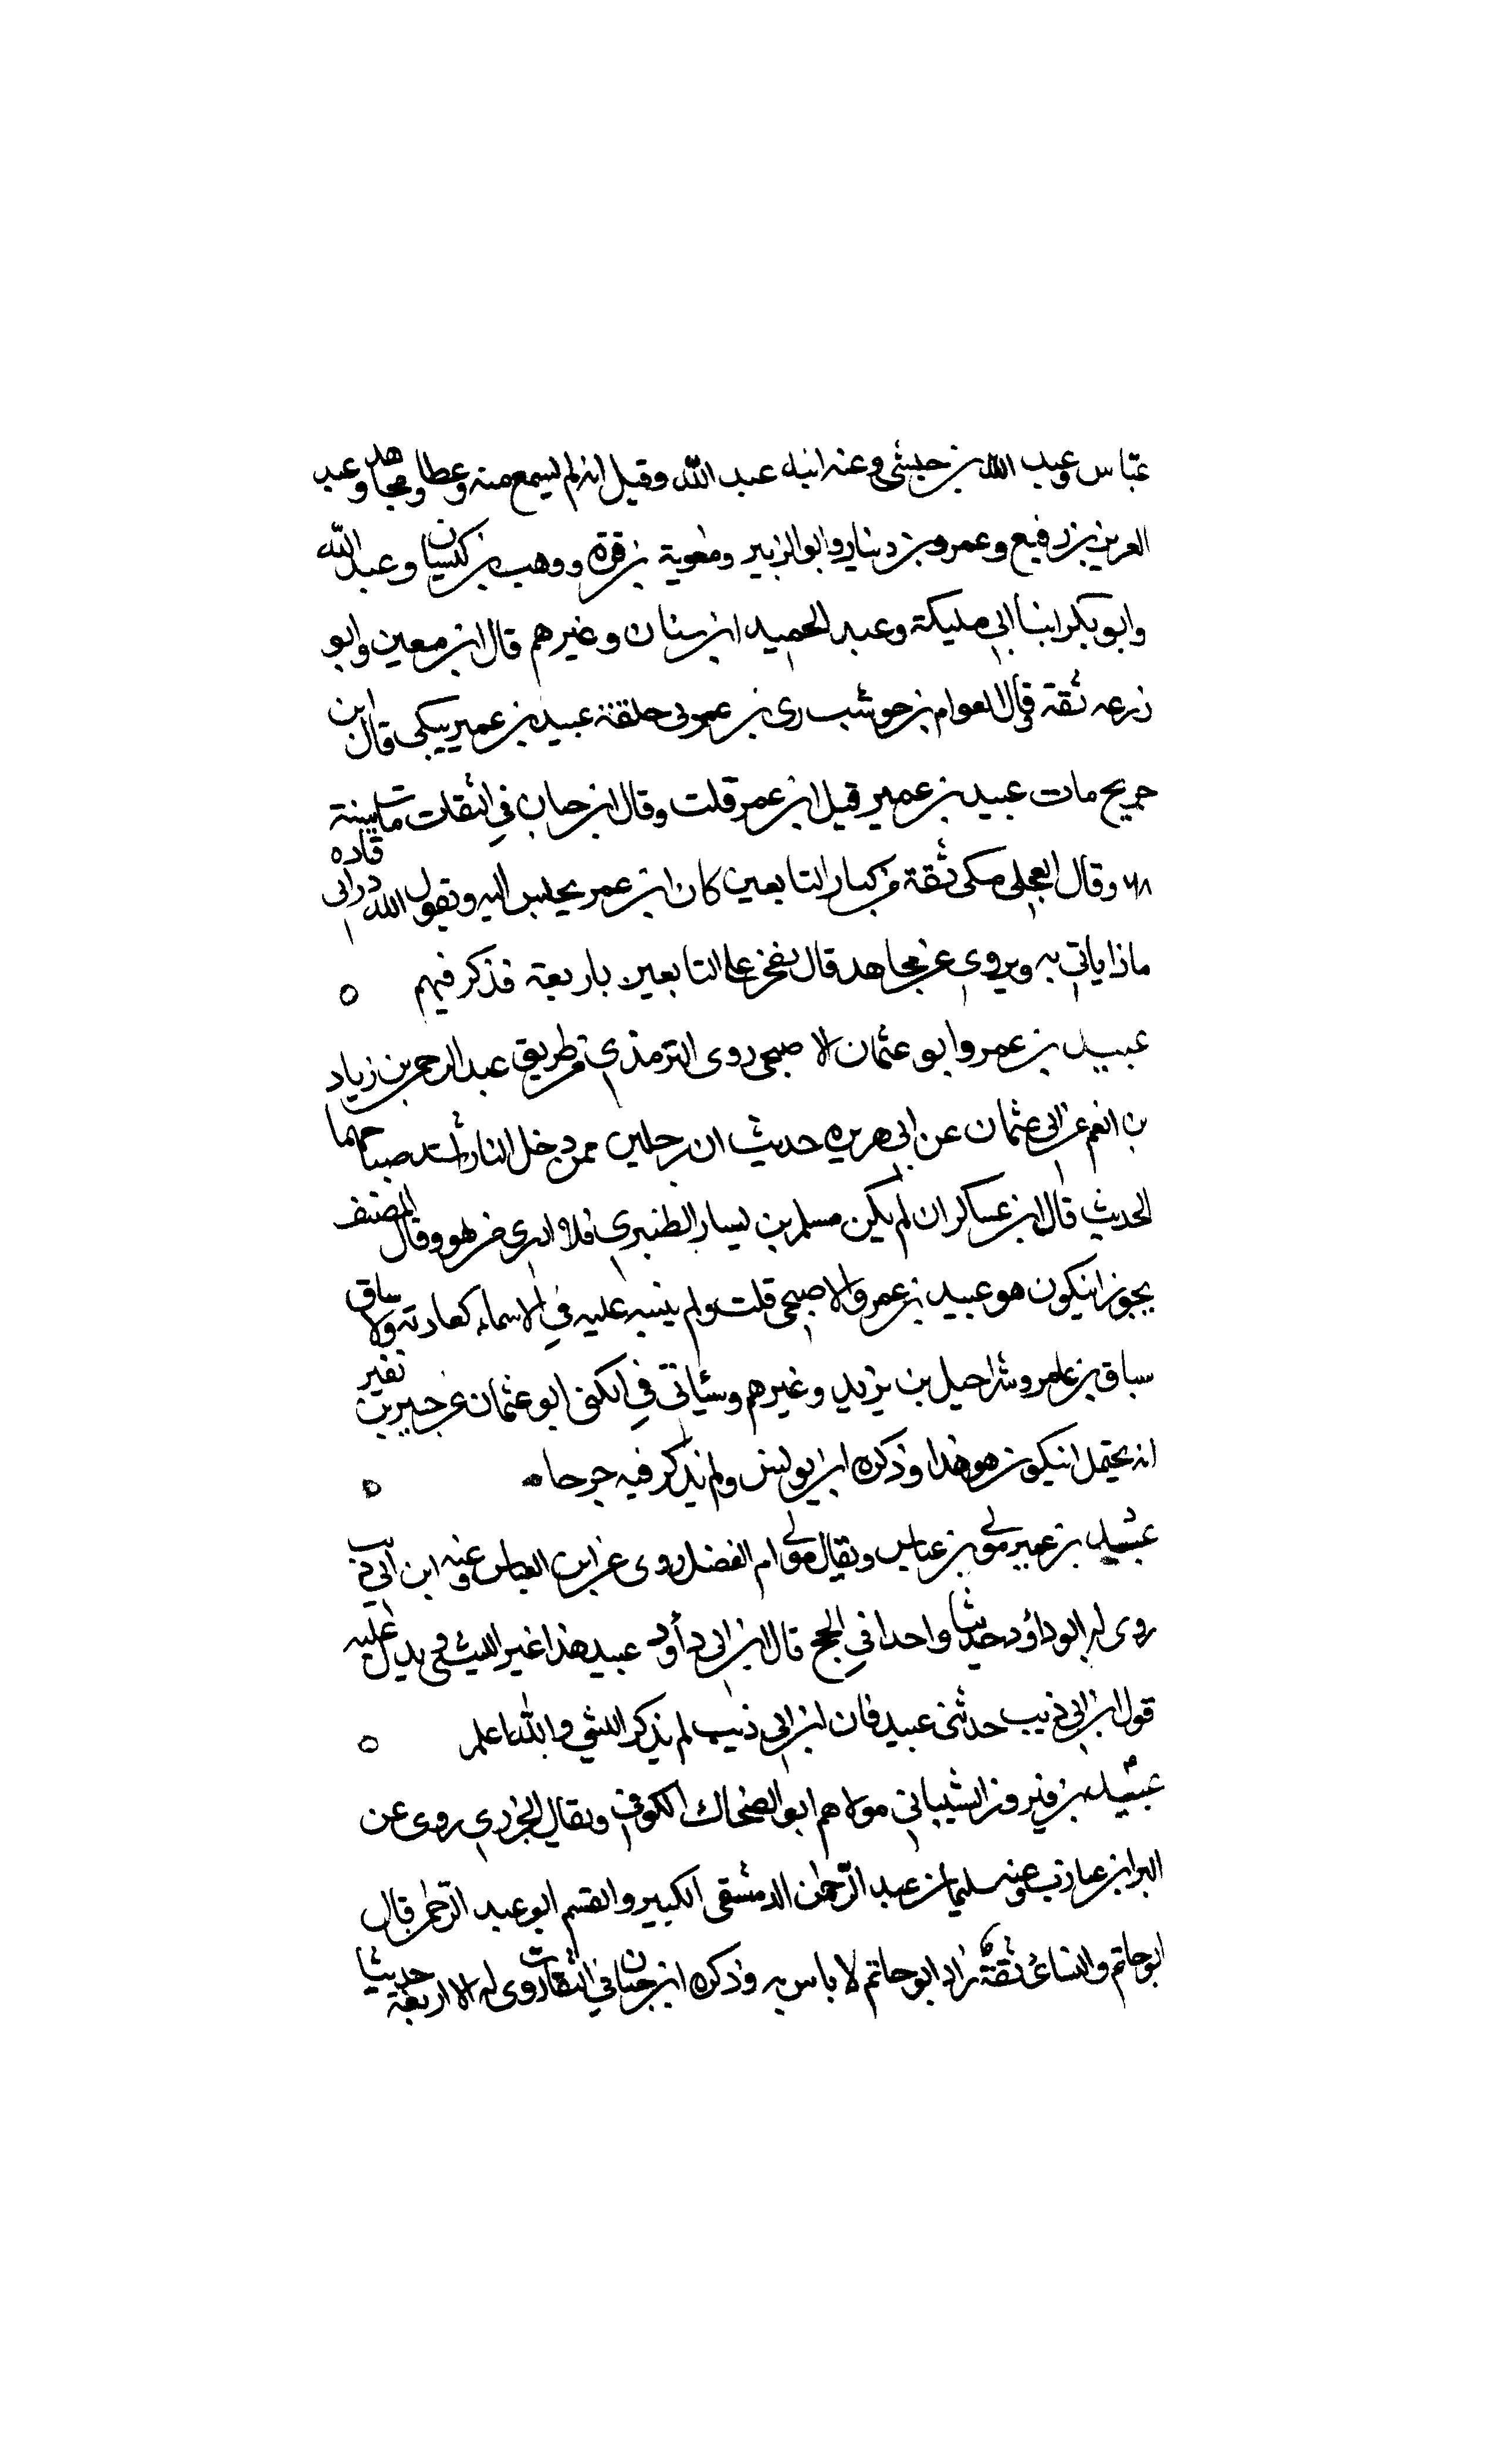 عباس وعبد الله بن حبشى وعنه ابنه عبد الله وقيل انه لم يسمع منه وعطا ومجاهد وعبد
العزيز بن رفيع وعمرو بن دينار وابو الزبير ومعوية بن قرة ووهب بن كيسان وعبد الله
وابو بكر ابنا ابي مليكة وعبد الحميد ابن سنان وغيرهم قال ابن معين وابو
زرعه ثقة قال العوام بن حوشب رى بن عمر فى حلقة عبيد بن عمير يبكى قال ابن
جريج مات عبيد بن عمير قبل ابن عمر قلت وقال ابن حبان في الثقات مات سنة
٦٨ وقال العجلي مكى ثقة من كبار التابعين كان ابن عمر يجلس اليه ويقول لله در ابى قتاده
ماذا ياتي به ويروى عن مجاهد قال نفخر على التابعين باربعة فذكر فيهم
عبيد بن عمرو ابو عثمان الاصبحى روى الترمذي من طريق عبد الرحمن بن زياد
بن انعم عن ابى عثمان عن ابى هريره حديث ان رجلين ممن دخل النار اشتد صياحهما
الحديث قال ابن عساكر ان لم يكن مسلم بن يسار الطنبري فلا ادري من هو وقال المصنف
يجوز انيكون هو عبيد بن عمرو الاصبحى قلت ولم ينبه عليه في الاسماء كعادته ولا ساق
سباق بن عامر وشراحيل بن يزيد وغيرهم وسياتى في الكنى ابو عثمان عن جبير بن نفير
انه يحتمل انيكون هو هذا وذكره ابن يونس ولم يذكر فيه جرحا
عبيد بن عمير مولى بن عباس ويقال مولى ام الفضل روى عن ابن العباس وعنه ابن ابي ذيب
روى له ابو داؤد حديثا واحدا في الحج قال ابن ابى دأود عبيد هذا غير الليثى يدل عليه
قول ابن ابي ذيب حدثنى عبيد فان ابن ابي ذيب لم يذكر الليثي والله اعلم
عبيد بن فيروز الشيباني مولاهم ابو الضحاك الكوفى ويقال الجزري روى عن
البرا بن عازب وعنه سليمان بن عبد الرحمن الدمشقى الكبير والقسم ابو عبد الرحمن قال
ابو حاتم والنسائى ثقة زاد ابو حاتم لا باس به وذكره ابن حبان في الثقات روى له الاربعة حديثا